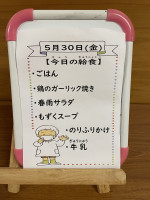 ５月３０日(金)
【今日の給食】
・ごはん
・鶏のガーリック焼き
・春雨サラダ
・もずくスープ
・のりふりかけ
・牛乳